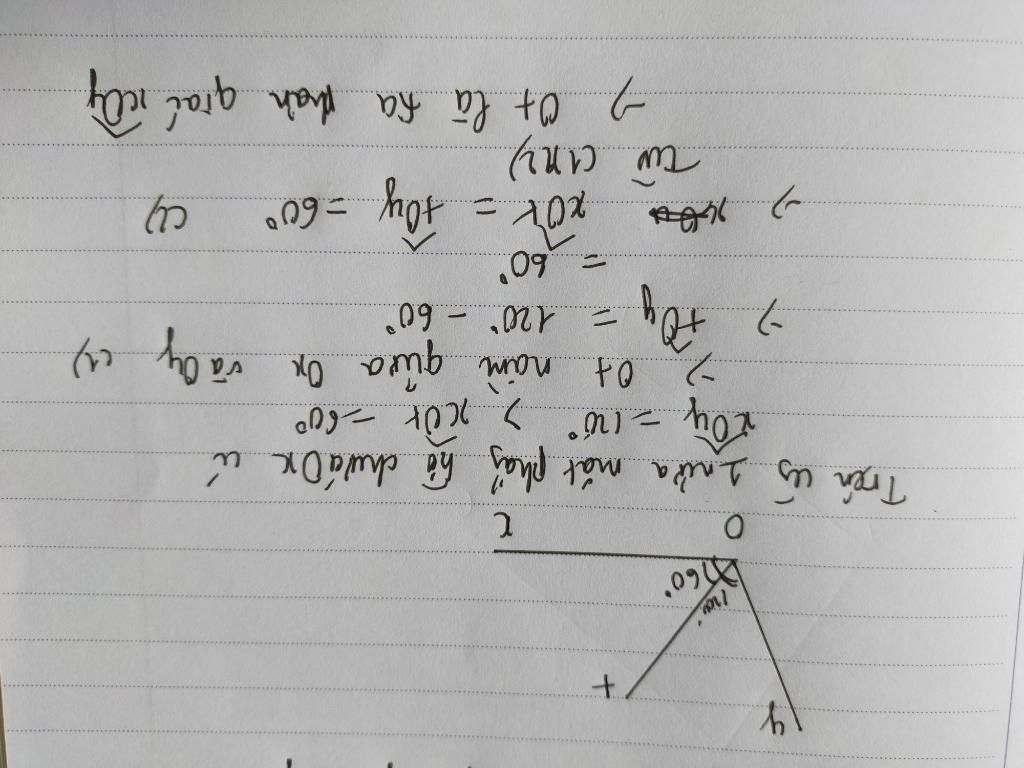 y
t
120°
60°
O x
Trên cg 1 nửa mặt phẳg bờ chứa Ox có
xOy = 120° > xOt = 60°
-> Ot nằm giữa Ox và Oy (1)
-> tOy = 120° - 60°
= 60°
-> xOt = tOy = 60° (2)
Từ (1)(2)
-> Ot là tia phân giác xOy